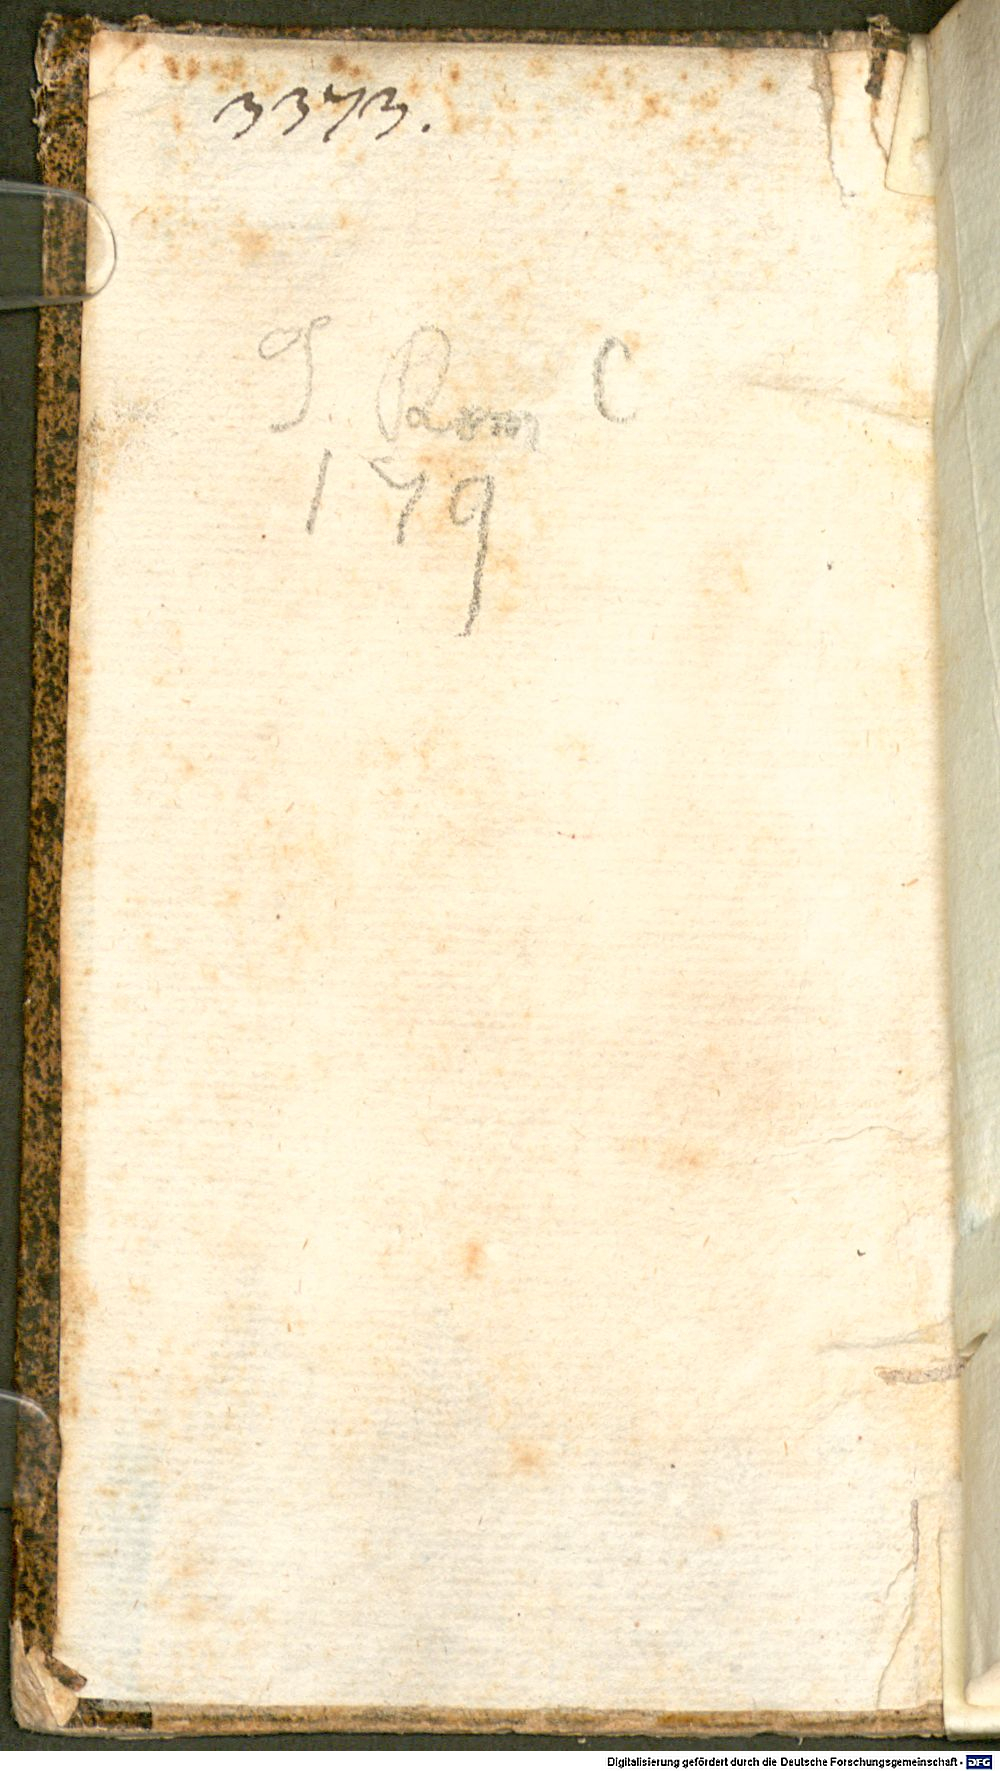 3373.
J. Rom C
179
Digitalisierung gefördert durch die Deutsche Forschungsgemeinschaft - DFG